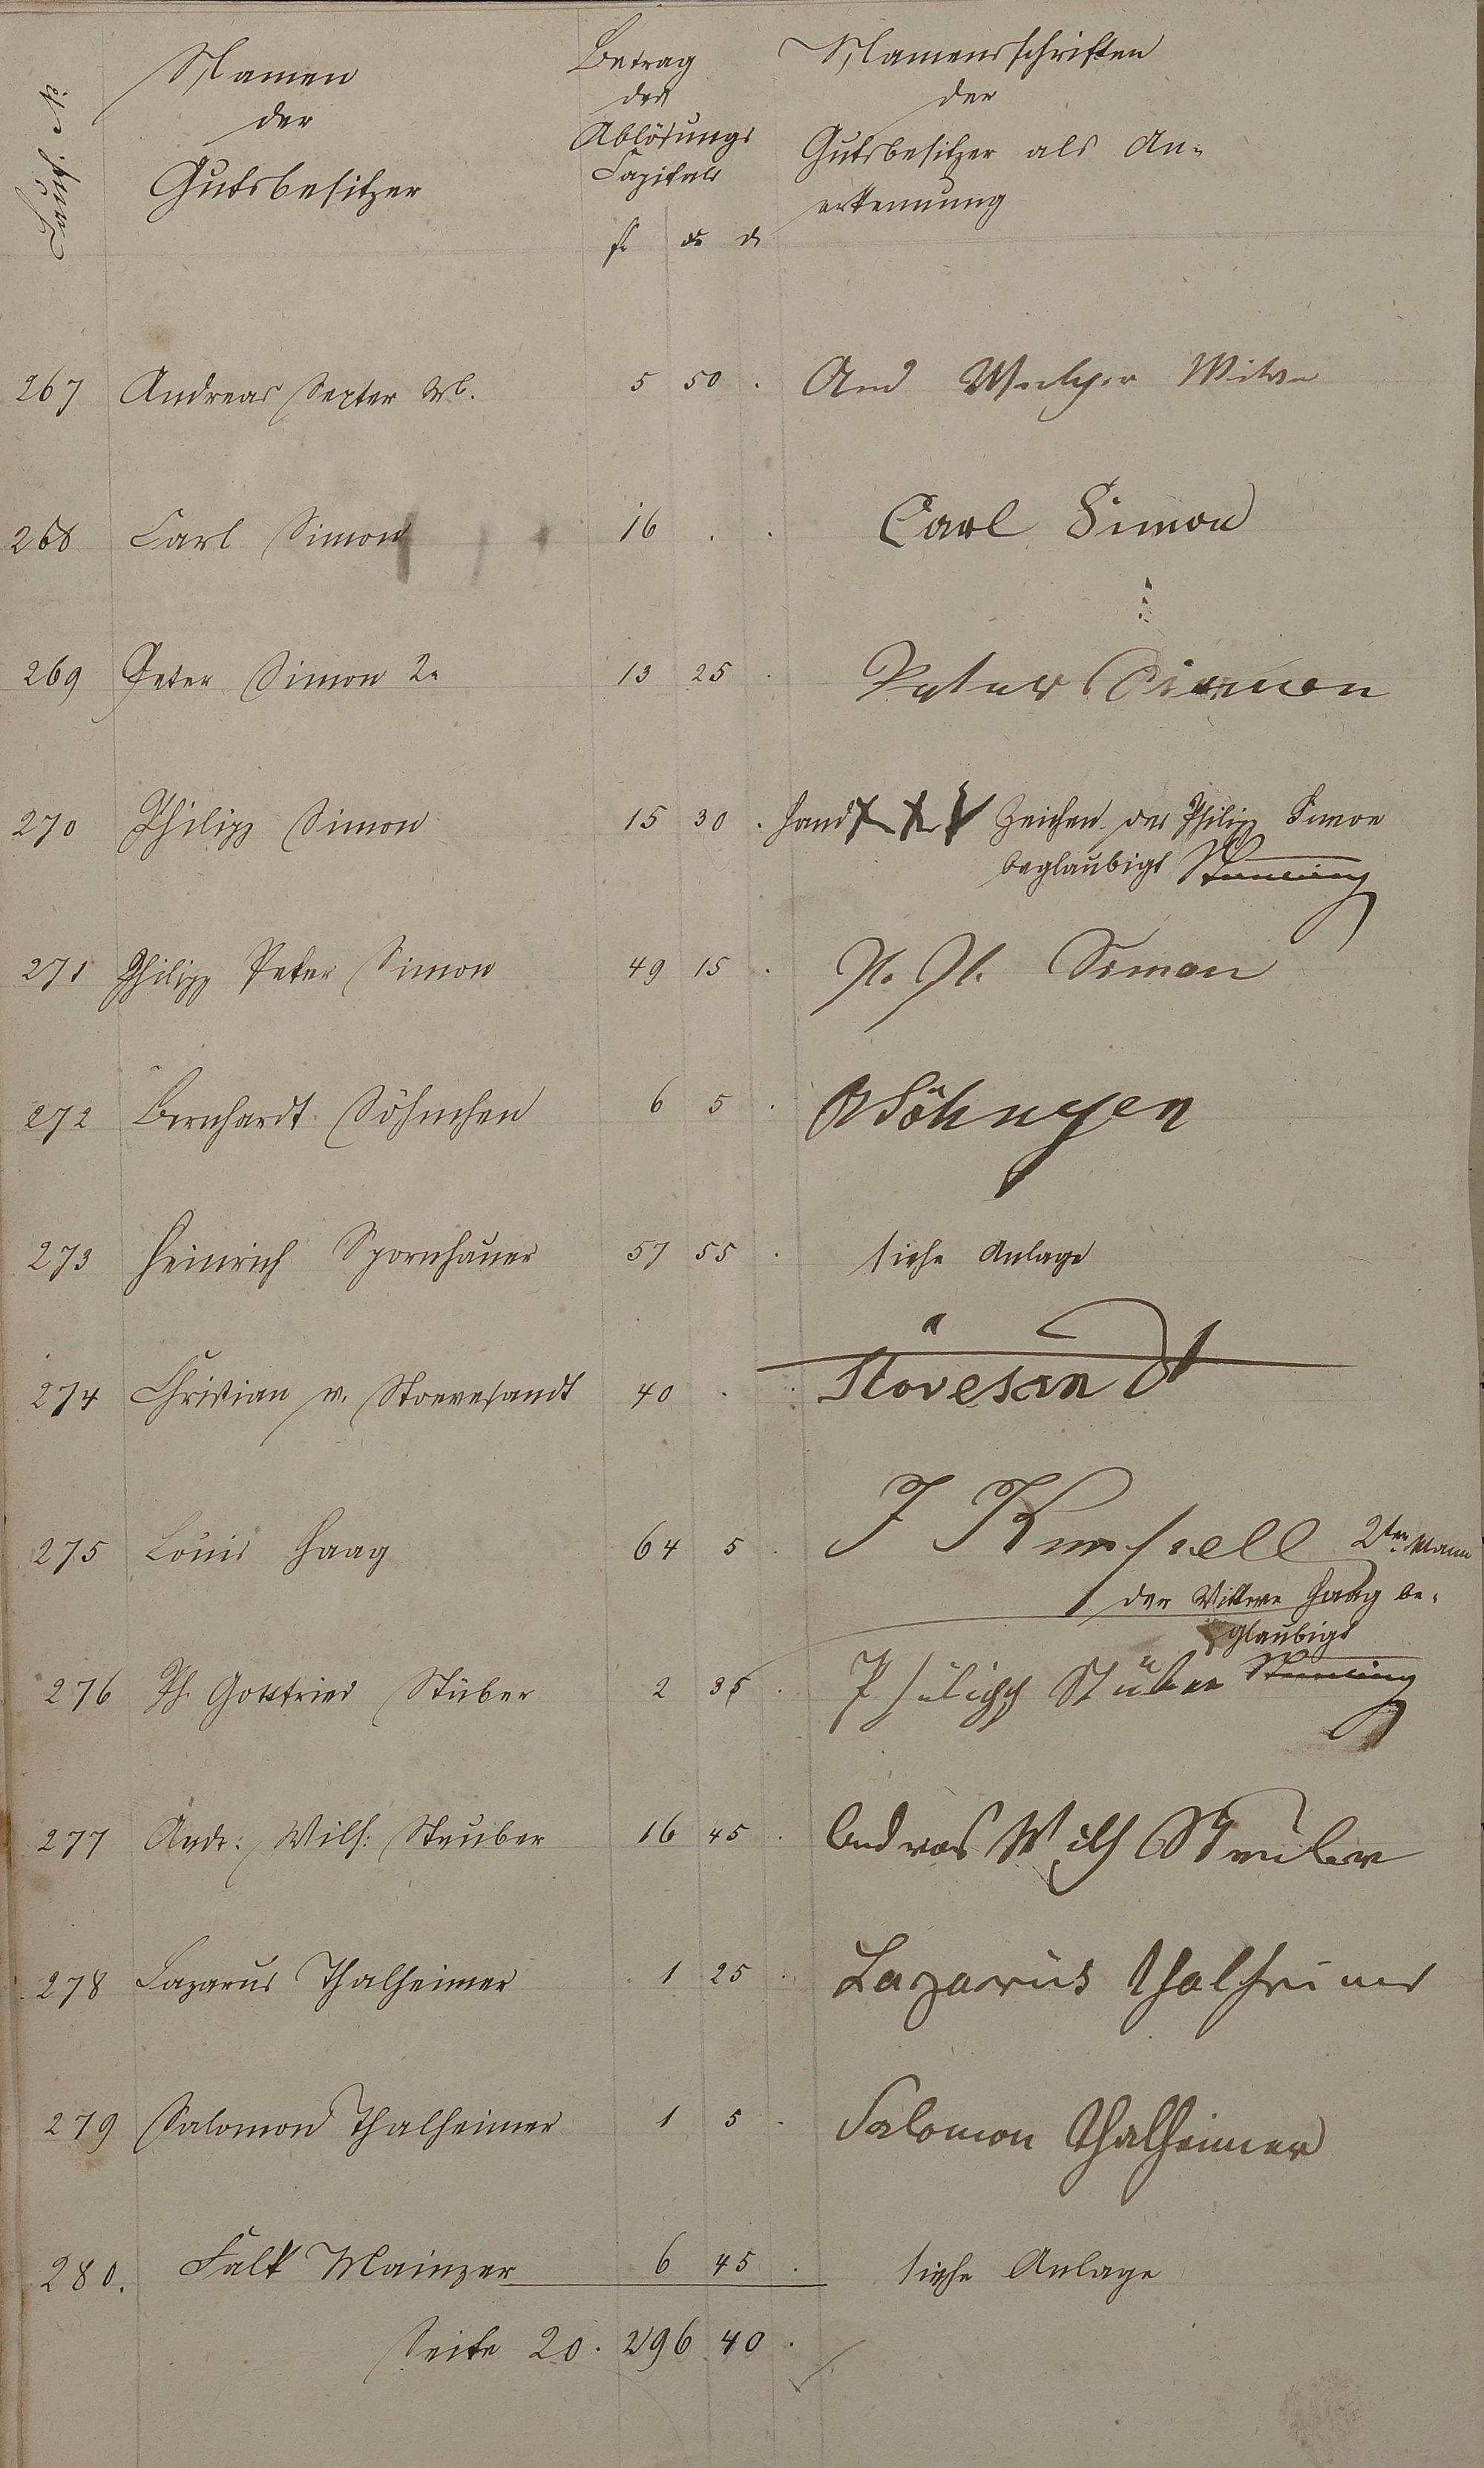 Laufd. №
Namen
der
Gutsbesitzer
Betrag
des
Ablösungs
Capitals
fl x d
Namensschriften
der
Gutsbesitzer als An-
erkennung
267 Andreas Septer Wb. 5 50 . And Witwe
268 Carl Simon 16 . . Carl Simon
269 Peter Simon 2r 13 25 . Peter Simon
270 Philipp Simon 15 30 . Hand xxx Zeichen des Philipp Simon
beglaubigt
271 Philipp Peter Simon 49 15 . Simon
272 Bernhardt Söhnchen 6 5 . B Söhngen
273 Heinrich Spornhauer 57 55 . siehe Anlage
274 Christian v. Stoevesandt 40 . . Stövesandt
275 Louis Haag 64 5 . 2ter Mann
der Wittwe Haag be-
glaubigt
276 Ph. Gottfried Stüber 2 35 . Philipp Stüber
277 Andr: Wilh: Steuber 16 45 . Andreas Wilh Steuber
278 Lazarus Thalheimer 1 25 . Lazarus Thalheimer
279 Salomon Thalheimer 1 5 . Salomon Thalheimer
280. Falk Mainzer 6 45 . siehe Anlage
Seite 20. 296 40 .